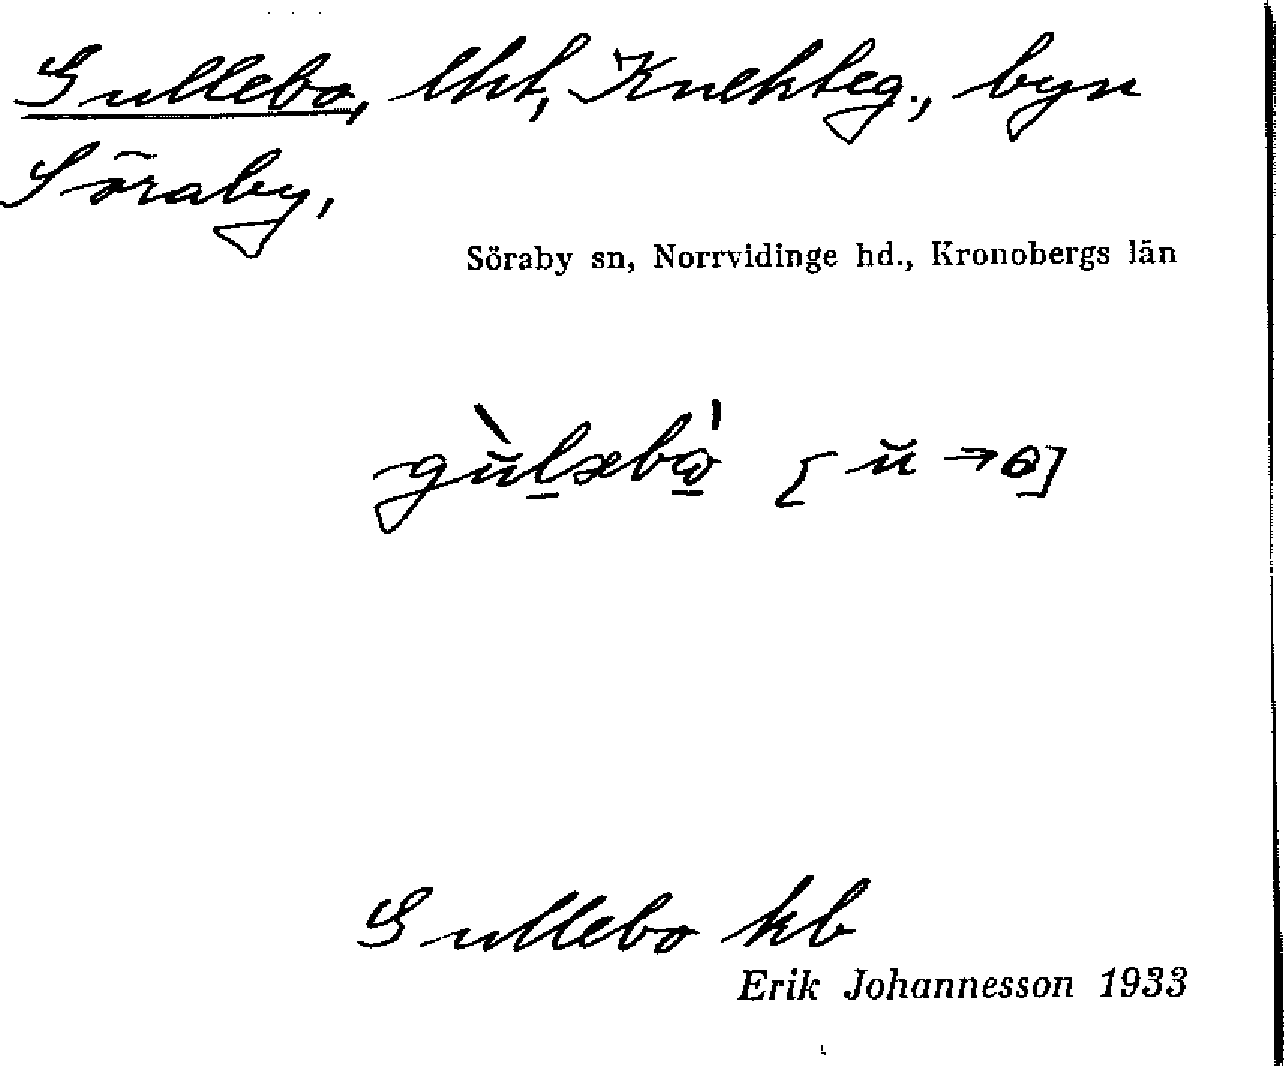 Gullebo, lht, Knekteg., byn
Söraby,
Söraby sn, Norrvidinge hd., Kronobergs län
Gullebo kb
Erik Johannesson 1933